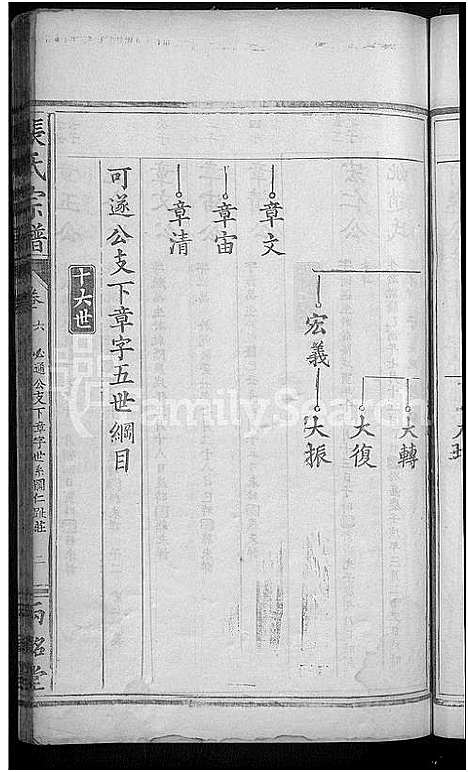 大轉
大復
宏義 大振
章文
章宙
章清
可遂公支下章字五世綱目
十六世
張氏宗譜
卷六 必通公支下章字世系圖仁趾莊 二
西銘堂
FamilySearch